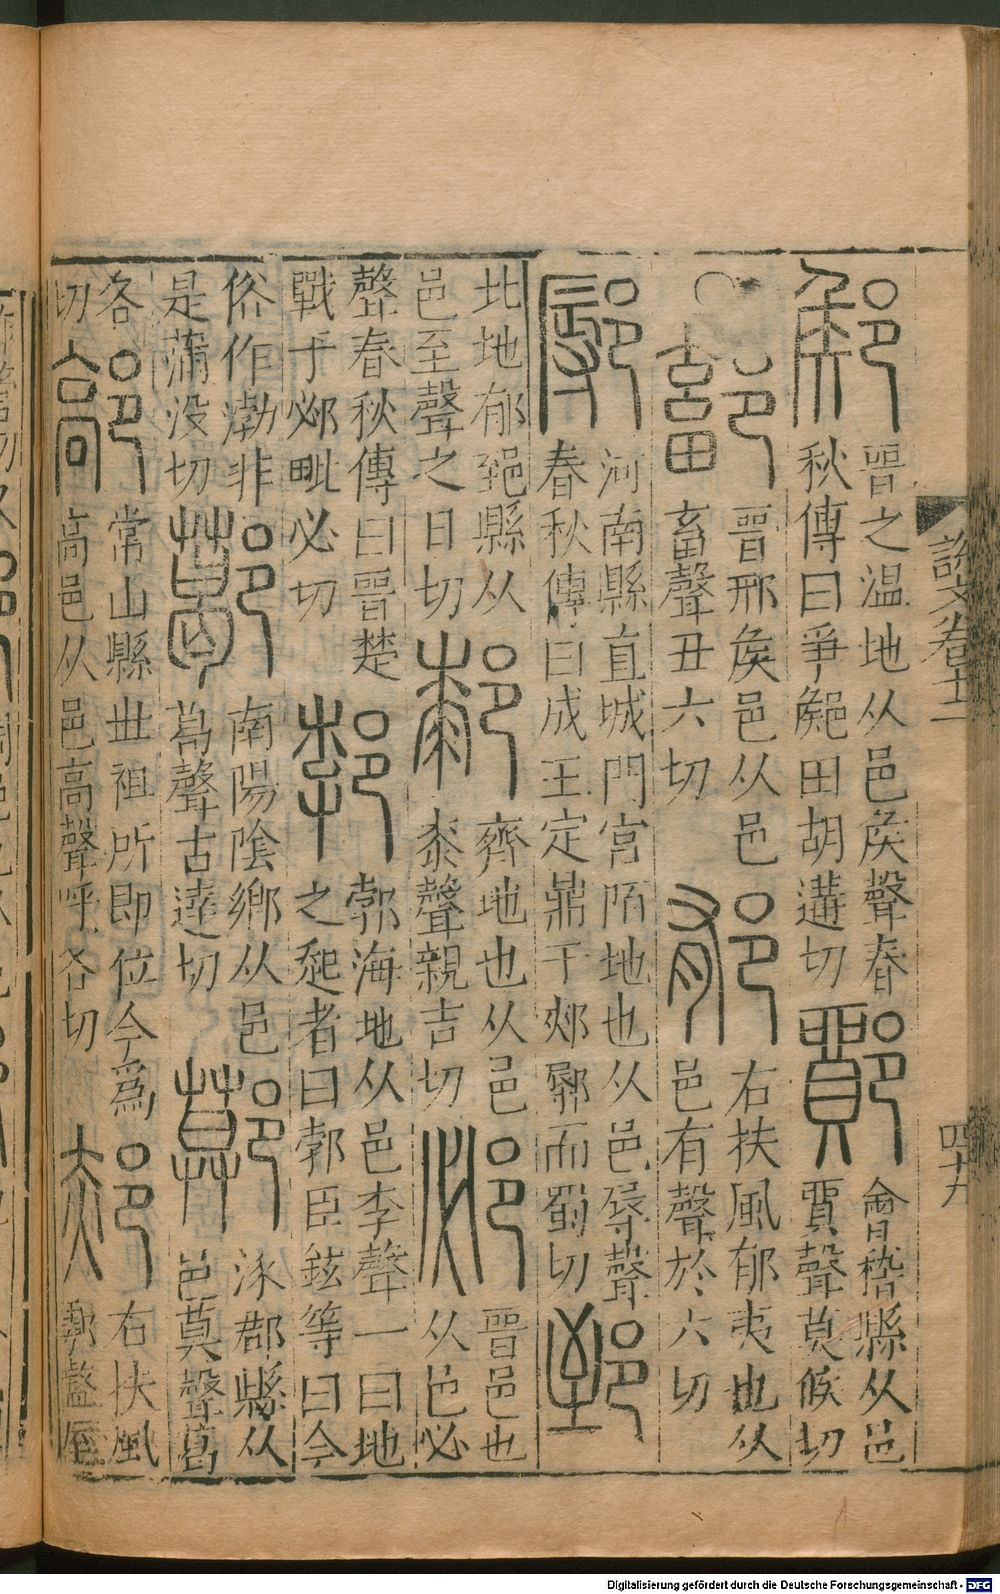 說文卷十一
四十九
鄇晉之温地从邑矦聲春
秋傳曰爭鄇田胡遘切
鄮會稽縣从邑
貿聲莫候切
鄐晉邢矦邑从邑
畜聲丑六切
郁右扶風郁夷也从
邑有聲於六切
鄏河南縣直城門宮陌地也从邑辱聲
春秋傳曰成王定鼎于郟鄏而蜀切
郅
北地郁郅縣从
邑至聲之日切
䣛齊地也从邑
桼聲親吉切
邲晉邑也
从邑必
聲春秋傳曰晉楚
戰于邲毗必切
郣郣海地从邑孛聲一曰地
之起者曰郣臣鉉等曰今
俗作渤非
是蒲没切
𨞛南陽陰鄉从邑
葛聲古達切
鄚涿郡縣从
邑莫聲葛
各
切
鄗常山縣世祖所即位今爲
高邑从邑高聲呼各切
郝右扶風
鄠盩厔